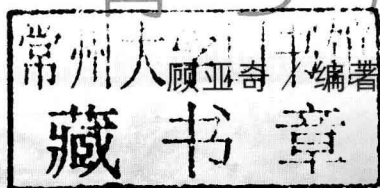 常州大学图书馆
顾亚奇 / 编著
藏书章